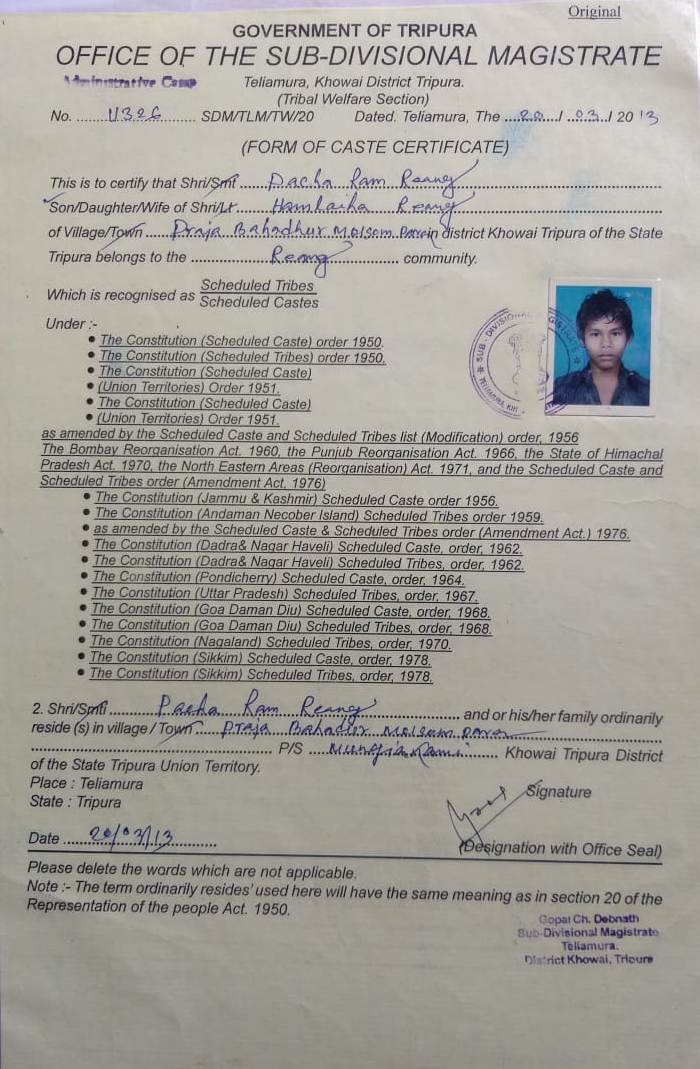 Original
GOVERNMENT OF TRIPURA
OFFICE OF THE SUB-DIVISIONAL MAGISTRATE
Administrative Camp
Teliamura, Khowai District Tripura.
(Tribal Welfare Section)
No. .........11326......... SDM/TLM/TW/20 Dated. Teliamura, The ...20..../ ..03../ 2013
(FORM OF CASTE CERTIFICATE)
This is to certify that Shri/Smt ......Pacha Ram Reang......
Son/Daughter/Wife of Shri/Lt. ......Reang......
of Village/Town ......Praja Bahadhur Molsom Para in district Khowai Tripura of the State
Tripura belongs to the ......Reang...... community.
Which is recognised as Scheduled Tribes
Scheduled Castes
Under :-
• The Constitution (Scheduled Caste) order 1950.
• The Constitution (Scheduled Tribes) order 1950.
• The Constitution (Scheduled Caste)
• (Union Territories) Order 1951.
• The Constitution (Scheduled Caste)
• (Union Territories) Order 1951.
as amended by the Scheduled Caste and Scheduled Tribes list (Modification) order, 1956
The Bombay Reorganisation Act. 1960, the Punjub Reorganisation Act. 1966, the State of Himachal
Pradesh Act. 1970, the North Eastern Areas (Reorganisation) Act. 1971, and the Scheduled Caste and
Scheduled Tribes order (Amendment Act. 1976)
• The Constitution (Jammu & Kashmir) Scheduled Caste order 1956.
• The Constitution (Andaman Necober Island) Scheduled Tribes order 1959.
• as amended by the Scheduled Caste & Scheduled Tribes order (Amendment Act.) 1976.
• The Constitution (Dadra& Nagar Haveli) Scheduled Caste, order, 1962.
• The Constitution (Dadra& Nagar Haveli) Scheduled Tribes, order, 1962.
• The Constitution (Pondicherry) Scheduled Caste, order, 1964.
• The Constitution (Uttar Pradesh) Scheduled Tribes, order, 1967.
• The Constitution (Goa Daman Diu) Scheduled Caste, order, 1968.
• The Constitution (Goa Daman Diu) Scheduled Tribes, order, 1968.
• The Constitution (Nagaland) Scheduled Tribes, order, 1970.
• The Constitution (Sikkim) Scheduled Caste, order, 1978.
• The Constitution (Sikkim) Scheduled Tribes, order, 1978.
2. Shri/Smti ......Pacha Ram Reang...... and or his/her family ordinarily
reside (s) in village / Town ......Praja Bahadur Molsom Para......
...... P/S ......Mungiakami...... Khowai Tripura District
of the State Tripura Union Territory.
Place : Teliamura
State : Tripura
Signature
Date ......20/03/13......
(Designation with Office Seal)
Please delete the words which are not applicable.
Note :- The term ordinarily resides' used here will have the same meaning as in section 20 of the
Representation of the people Act. 1950.
Gopal Ch. Debnath
Sub-Divisional Magistrate
Teliamura.
District Khowai, Tripura